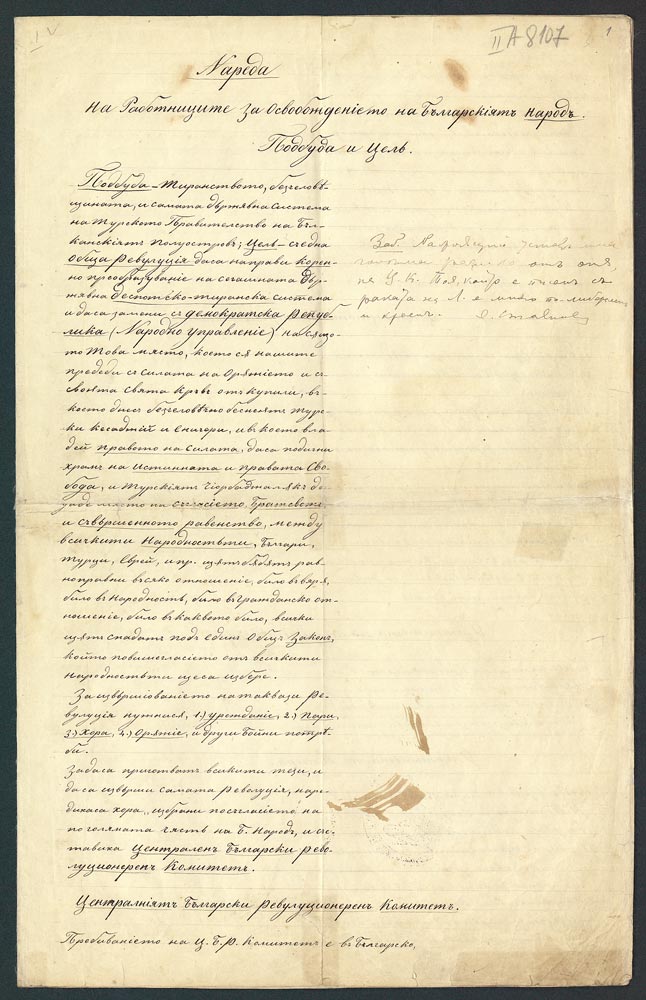 II A 8107
1
Нареда
на Работниците за Освобождението на Българскіятъ народъ.
Подбуда и Цель.
Подбуда – Тиранството, безчеловѣ-
щината, и самата държавна система
на Турското Правителство на Бъл-
канскіятъ полуостровъ; Цель – съ една
обща револуція да са направи корен-
но преобразувание на сегашната дър-
жавна деспотско-тиранска система
и да са замени съ демократска Репуб-
лика (Народно управление) на също-
то това место, което ся нашите
прадеди съ силата на Оръжието и съ
своята свята кръвъ откупили, въ
което днес безчеловѣчно беснеятъ турс-
ки кесаджии и еничери, и въ което вла-
дей правото на силата, да са подигни
храмъ на истинната и правата Сво-
бода, и турскіятъ чорбаджилъкъ да
даде място на съгласіето, Братството
и съвършенното равенство, между
всичкити Народностьти, Българи,
турци, Евреи, и пр. щатъ бъдатъ рав-
ноправни въ сяко отношение, било въ вяра,
било въ Народность, било въ Гражданско от-
ношение, било въ каквото било, всички
щатъ спадатъ подъ единъ общъ Законъ,
който по вишегласіето отъ всичкити
народностьти ще са избере.
За извършюванието на таквази Ре-
вулуція нужни ся, 1.) уреждание, 2.) Пари,
3.) Хора, 4.) Оръжие, и други бойни потрѣ-
би.
За да са приготвятъ всичките тези, и
да са извърши самата Револуція, наре-
диха са хора, избрани по съгласіето на
по голямата часть на Б. Народъ, и съ-
ставиха Централенъ Български рево-
луционеренъ Комитетъ.
Централніятъ Български Ревулуционеренъ Комитетъ.
Пребиванието на Ц. Б. Р. Комитетъ е въ Българско,